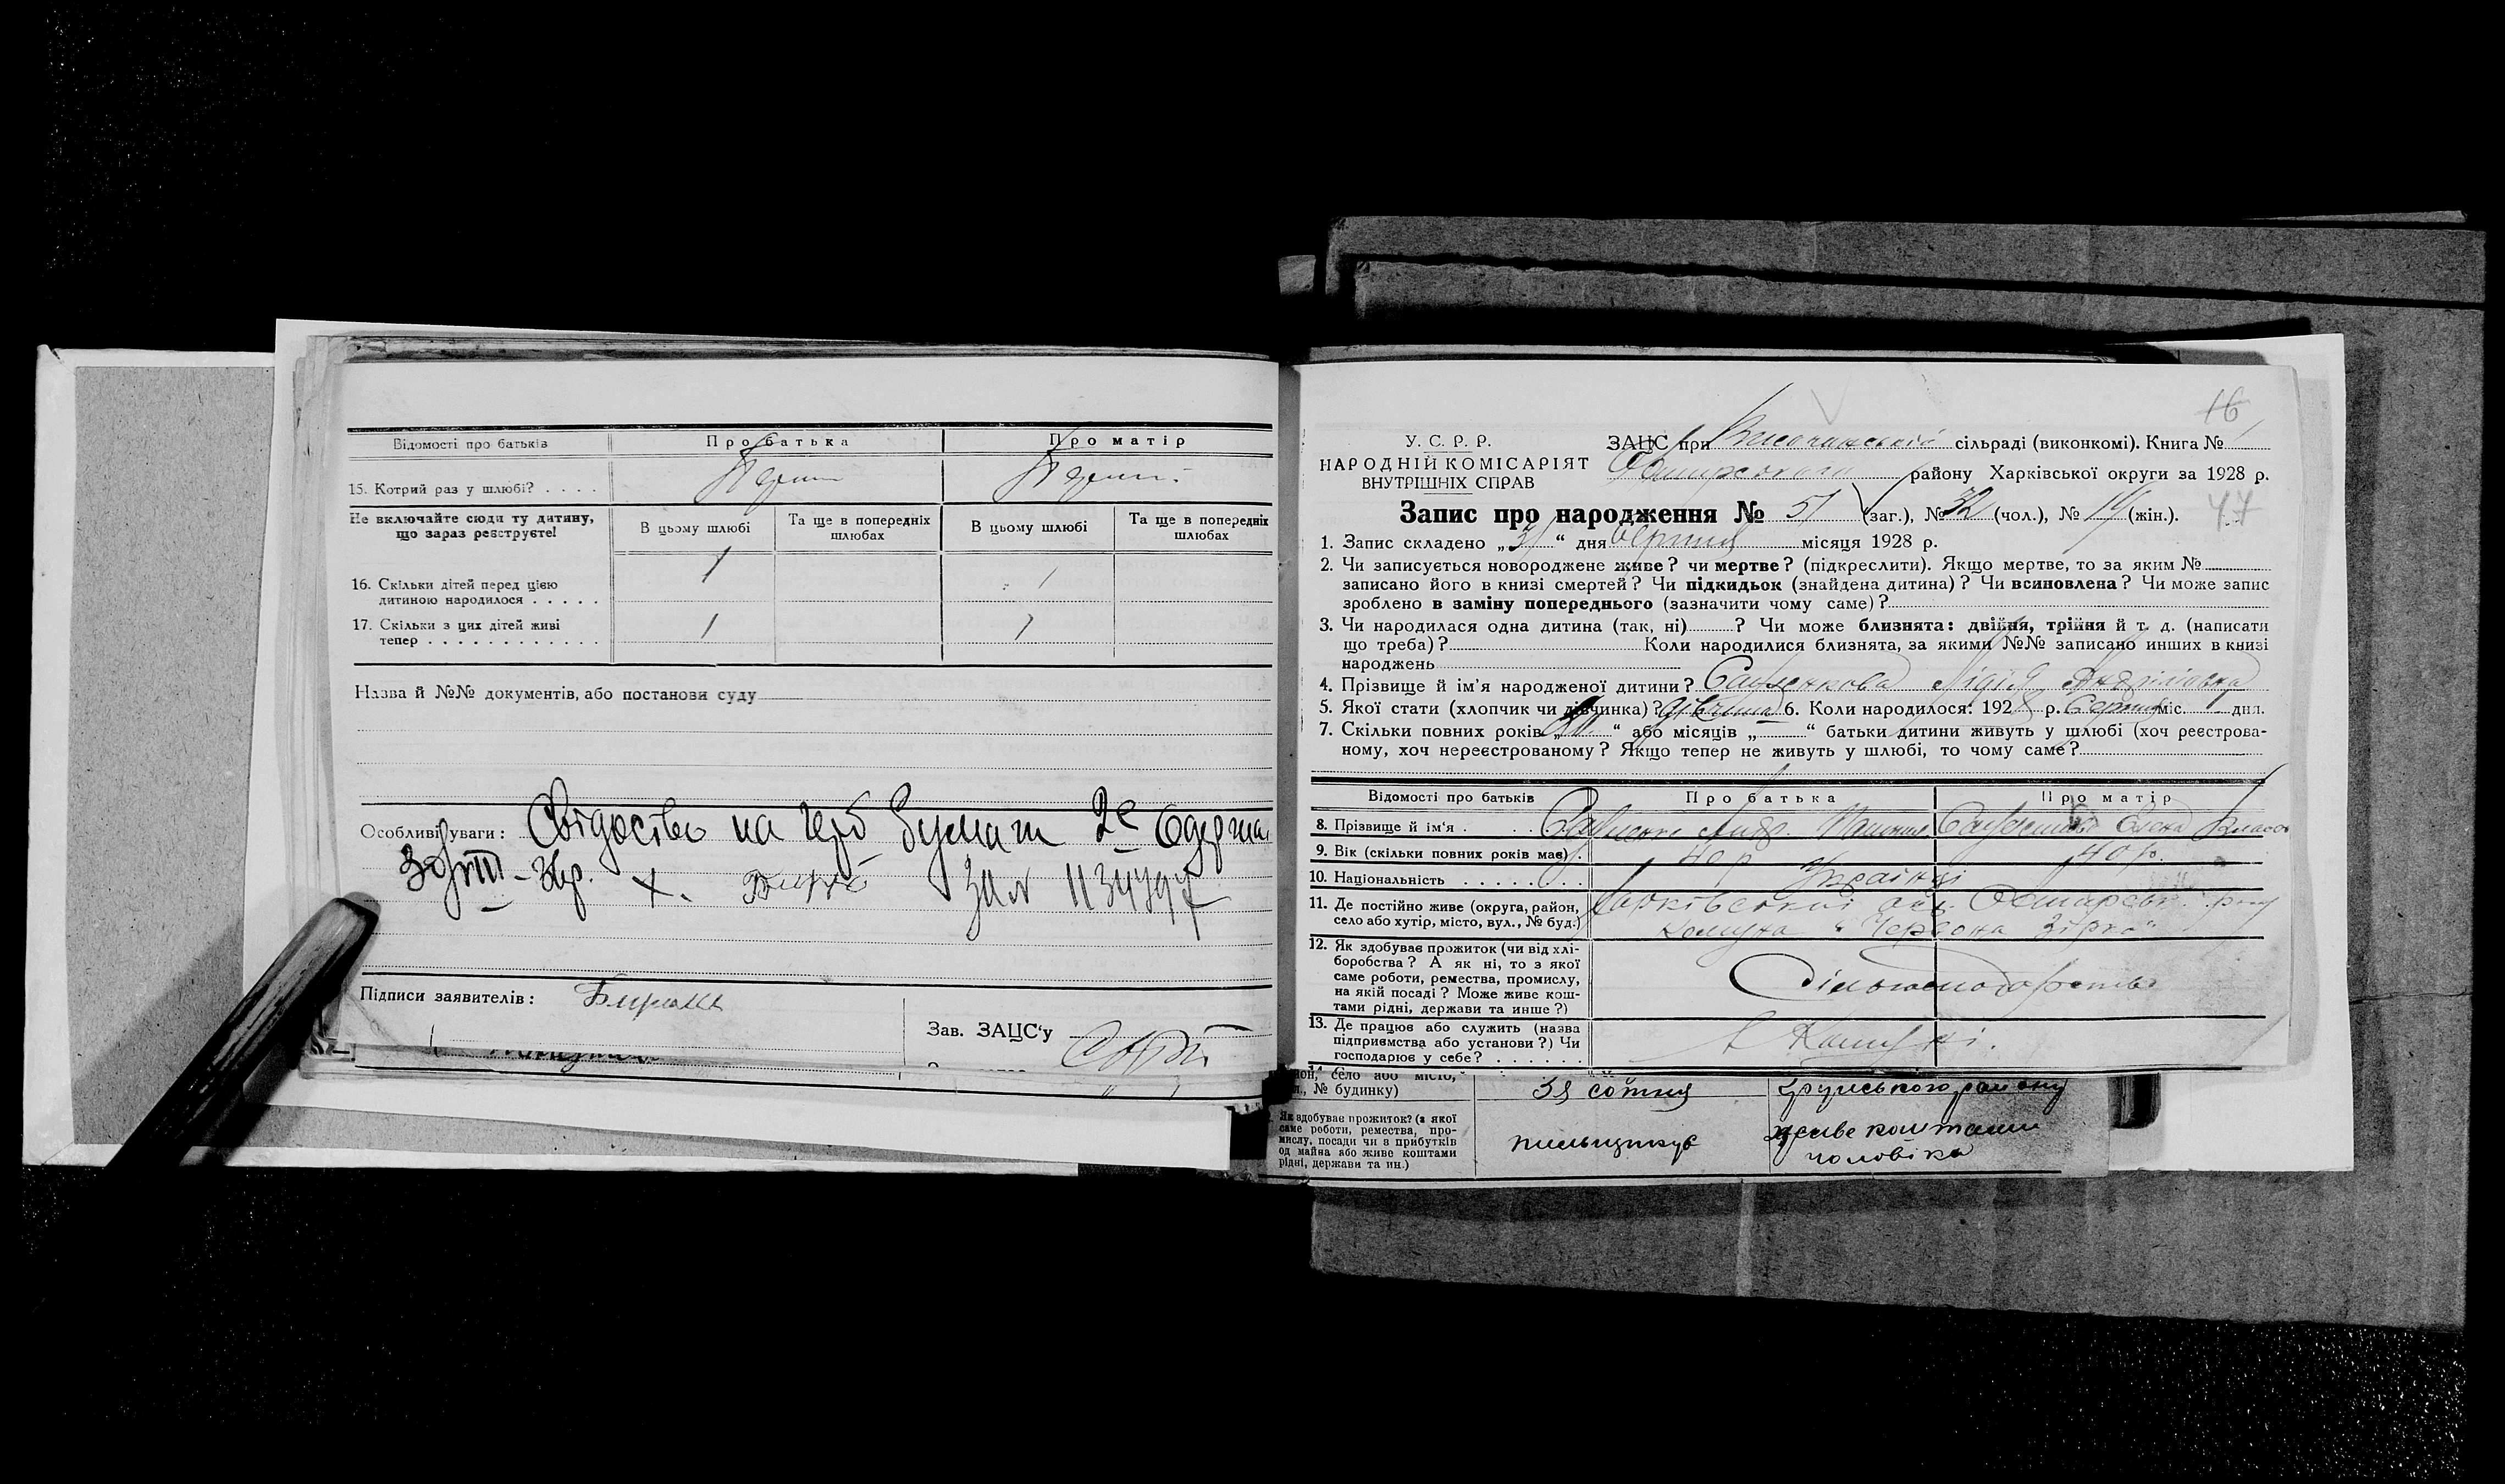 Відомості про батьків
Про батька
Про матір
15. Котрий раз у шлюбі? . . . .
Не включайте сюди ту дитину,
що зараз реєструєте!
В цьому шлюбі
Та ще в попередніх
шлюбах
В цьому шлюбі
Та ще в попередніх
шлюбах
16. Скільки дітей перед цією
дитиною народилося . . . . .
1
1
17. Скільки з цих дітей живі
тепер . . . . . . . . . . . .
1
1
Назва й №№ документів, або постанови суду
Особливі уваги: Свідоство на герб 2е
1134397
Підписи заявителів:
Зав. ЗАЦС'у
16
У. С. Р. Р.
НАРОДНІЙ КОМІСАРІЯТ
ВНУТРІШНІХ СПРАВ
ЗАЦС при сільраді (виконкомі). Книга № 1
району Харківської округи за 1928 р.
Запис про народження № 51 (заг.), № 32 (чол.), № 19 (жін.). 47
1. Запис складено „31“ дня серпня місяця 1928 р.
2. Чи записується новороджене живе? чи мертве? (підкреслити). Якщо мертве, то за яким №
записано його в книзі смертей? Чи підкидьок (знайдена дитина)? Чи всиновлена? Чи може запис
зроблено в заміну попереднього (зазначити чому саме)?
3. Чи народилася одна дитина (так, ні) ? Чи може близнята: двійня, трійня й т. д. (написати
що треба)? Коли народилися близнята, за якими №№ записано инших в книзі
народжень
4. Прізвище й ім'я народженої дитини? Лідія Андріївна
5. Якої стати (хлопчик чи дівчинка)? дівчина 6. Коли народилося: 1928 р. Серпня міс. дня.
7. Скільки повних років „ “ або місяців „ “ батьки дитини живуть у шлюбі (хоч реєстрова-
ному, хоч нереєстрованому? Якщо тепер не живуть у шлюбі, то чому саме?
Відомості про батьків
Про батька
Про матір
8. Прізвище й ім'я . . . .
9. Вік (скільки повних років має) .
40 р
40 р.
10. Національність . . . . . . . .
Українці
11. Де постійно живе (округа, район,
село або хутір, місто, вул., № буд.)
Харківської окр.
Комуна „Червона Зірка“
12. Як здобуває прожиток (чи від хлі-
боробства? А як ні, то з якої
саме роботи, ремества, промислу,
на якій посаді? Може живе кош-
тами рідні, держави та инше?)
Сільськогосподарство
13. Де працює або служить (назва
підприємства або установи?) Чи
господарює у себе? . . . . . .
в Комуні.
село або місто,
№ будинку)
3я сотня
району
Як здобуває прожиток? (з якої
саме роботи, ремества, про-
мислу, посади чи з прибутків
од майна або живе коштами
рідні, держави та ин.)
пильщикує
живе коштами
чоловіка